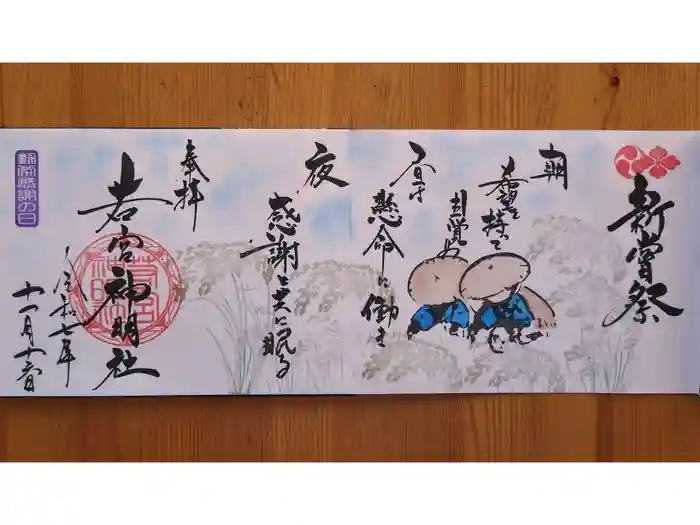 新嘗祭
朝
希望を持って
目覚め
昼は
懸命に働き
夜
感謝と共に眠る
奉拝
若宮神明社
令和七年
十一月十六日
勤労感謝の日